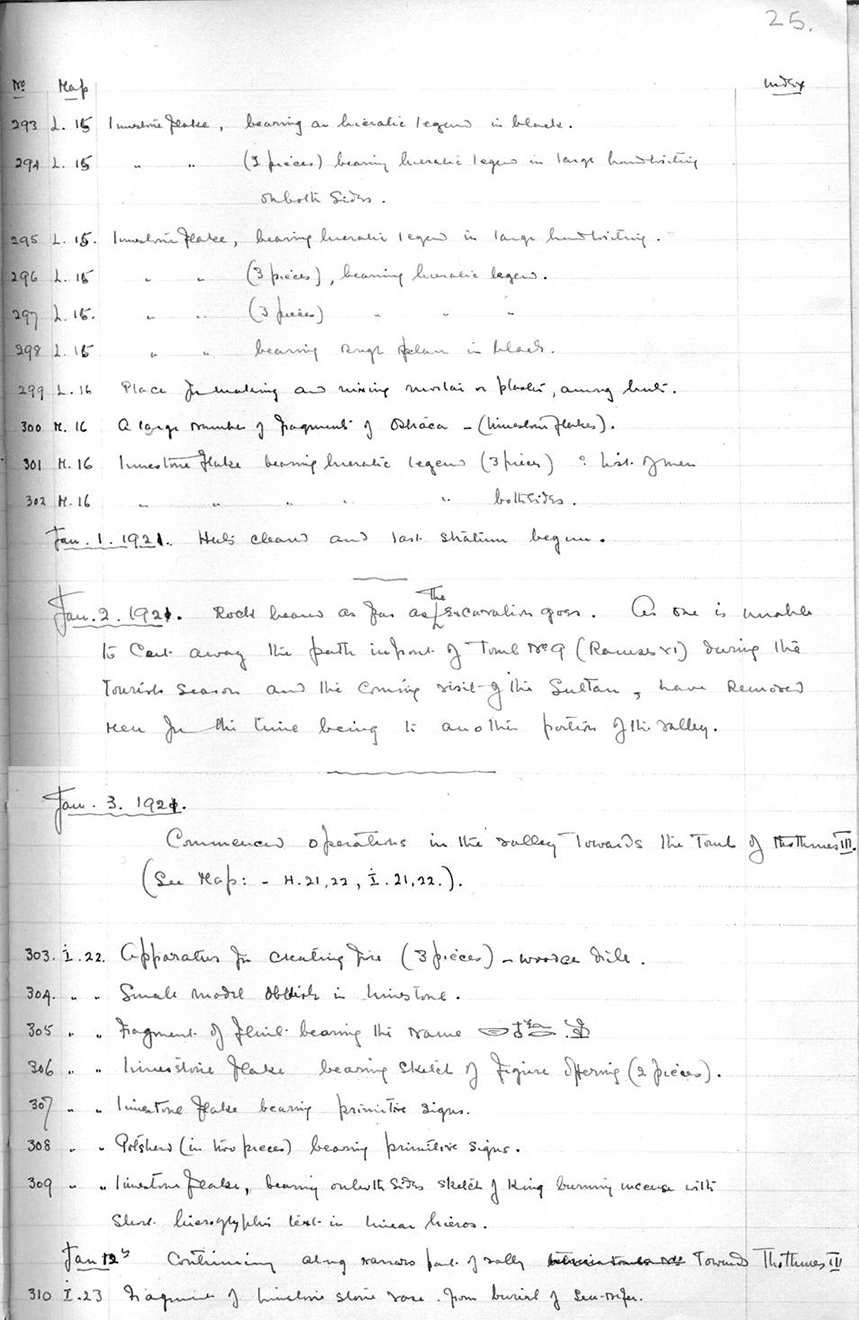 25.
No Map Index
293 L. 15 Limestone flake, bearing an hieratic legend in black.
294 L. 15 " " (3 pieces) bearing hieratic legend in large handwriting
on both sides.
295 L. 15. Limestone flake, bearing hieratic legend in large handwriting.
296 L. 15 " " (3 pieces), bearing hieratic legend.
297 L. 15. " " (3 pieces) " " "
298 L. 15 " " bearing rough plan in black.
299 L. 16 Place for making and mixing mortar or plaster, among huts.
300 M. 16 A large number of fragments of Ostraca - (limestone flakes).
301 M. 16 Limestone flake bearing hieratic legend (3 pieces) ? List of men
302 M. 16 " " " " " both sides.
Jan. 1. 1921. Huts cleared and last stratum begun.
Jan. 2. 1921. Rock beared as far as the Excavation goes. As one is unable
to cut away the path in front of Tomb No 9 (Ramses VI) during the
Tourist season and the coming visit of the Sultan, have removed
men for the time being to another portion of the valley.
Jan. 3. 1921.
Commenced operations in the valley towards the Tomb of Thothmes III.
(See Map: - H.21,22, I.21,22.).
303. I.22. Apparatus for creating fire (3 pieces) - wooden
304. " " Small model in limestone.
305 " " Fragment of bearing the name
306 " " Limestone flake bearing sketch of figure offering (2 pieces).
307 " " Limestone flake bearing primitive signs.
308 " " Potsherd (in two pieces) bearing primitive signs.
309 " " Limestone flake, bearing on both sides sketch of King burning incense with
short hieroglyphic text in linear hieros.
Jan 12th Continuing along narrow part of valley toward Thothmes III
310 I.23 Fragment of limestone stone vase. From burial of Sen-nefer.